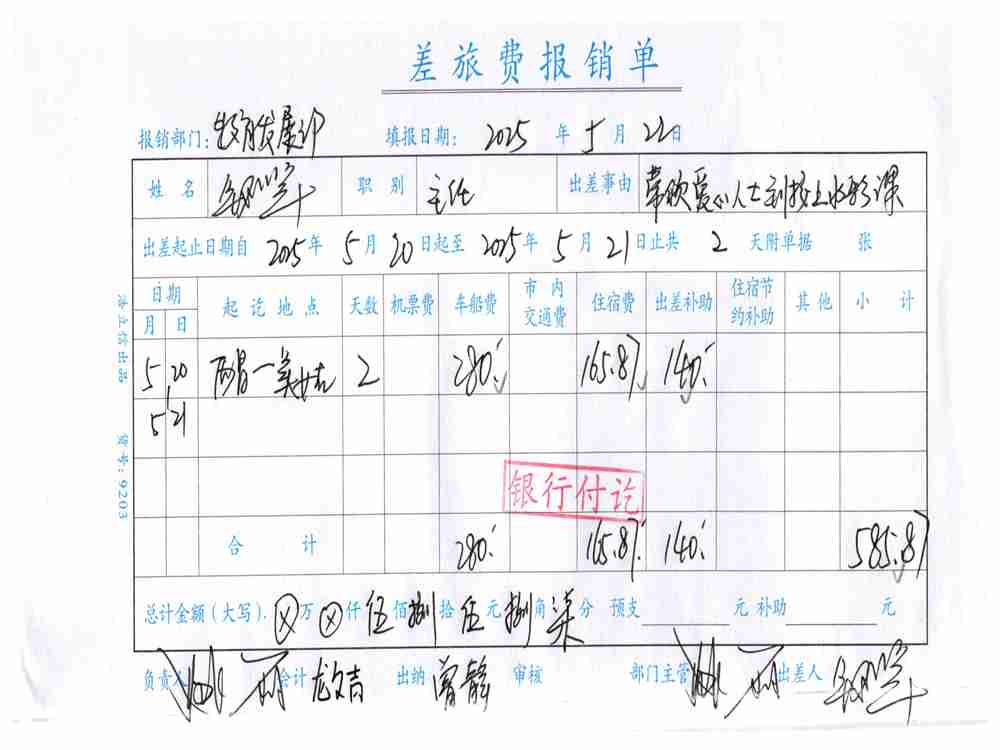 差旅费报销单
报销部门: 教育发展部 填报日期: 2025 年 5 月 22 日
姓名 职别 主任 出差事由 带领爱心人士到校上水彩课
出差起止日期自 2025 年 5 月 20 日起至 2025 年 5 月 21 日止共 2 天附单据 张
日期 起讫地点 天数 机票费 车船费 市内交通费 住宿费 出差补助 住宿节约补助 其他 小计
月 日
5 20 2 280. 165.87 140.
5 21
银行付讫
合计 280. 165.87 140. 585.87
总计金额(大写). ⊗万⊗仟伍佰捌拾伍元捌角柒分 预支 元 补助 元
负责人 会计 龙文吉 出纳 曾静 审核 部门主管 出差人
浩立信出品 货号: 9203